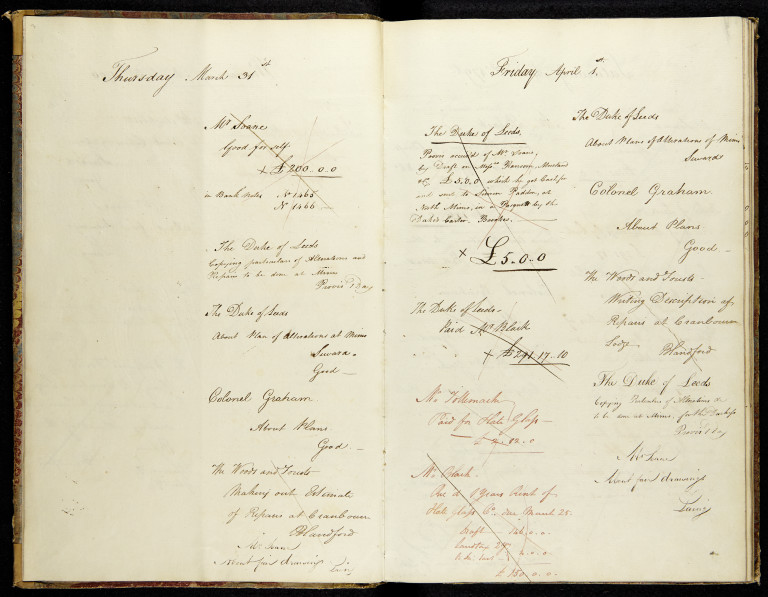 Thursday March 31st
Mr Soane
Good for self
+ £200.0.0
in Bank Notes No 1465
No 1466
The Duke of Leeds
Copying particulars of Alterations and
Repairs to be done at Mims
Provis Day
The Duke of Leeds
About Plan of Alterations at Mims
Seward
Good
Colonel Graham
About Plans
Good
The Woods and Forests
Making out Estimate
of Repairs at Cranbourn
Blandford
Mr Soane
About fair drawings
Laing
Friday April 1st
The Duke of Leeds.
by Draft on Messrs
& Co £5.0.0 which he got Cash for
and sent to Simon Paddon, at
North Mims, in a Parquett by the
Duke's Carter
× £5.0.0
The Duke of Leeds
Paid Mr Black
+ £291.17.10
Mr Tollemach
Paid for Plate Glass
Mr Clark
Rec'd 1 Years Rent of
Plate glass Co. due March 25.
£150.0.0
The Duke of Leeds
About Plans of Alterations of Mims
Seward
Colonel Graham.
About Plans
Good
The Woods and Forests
Writing Description of
Repairs at Cranbourn
Lodge
Blandford
The Duke of Leeds
Copying Particulars of Alterations &c
to be done at Mims, for the Duchess
Provis Day
Mr Soane
About fair drawings
Laing